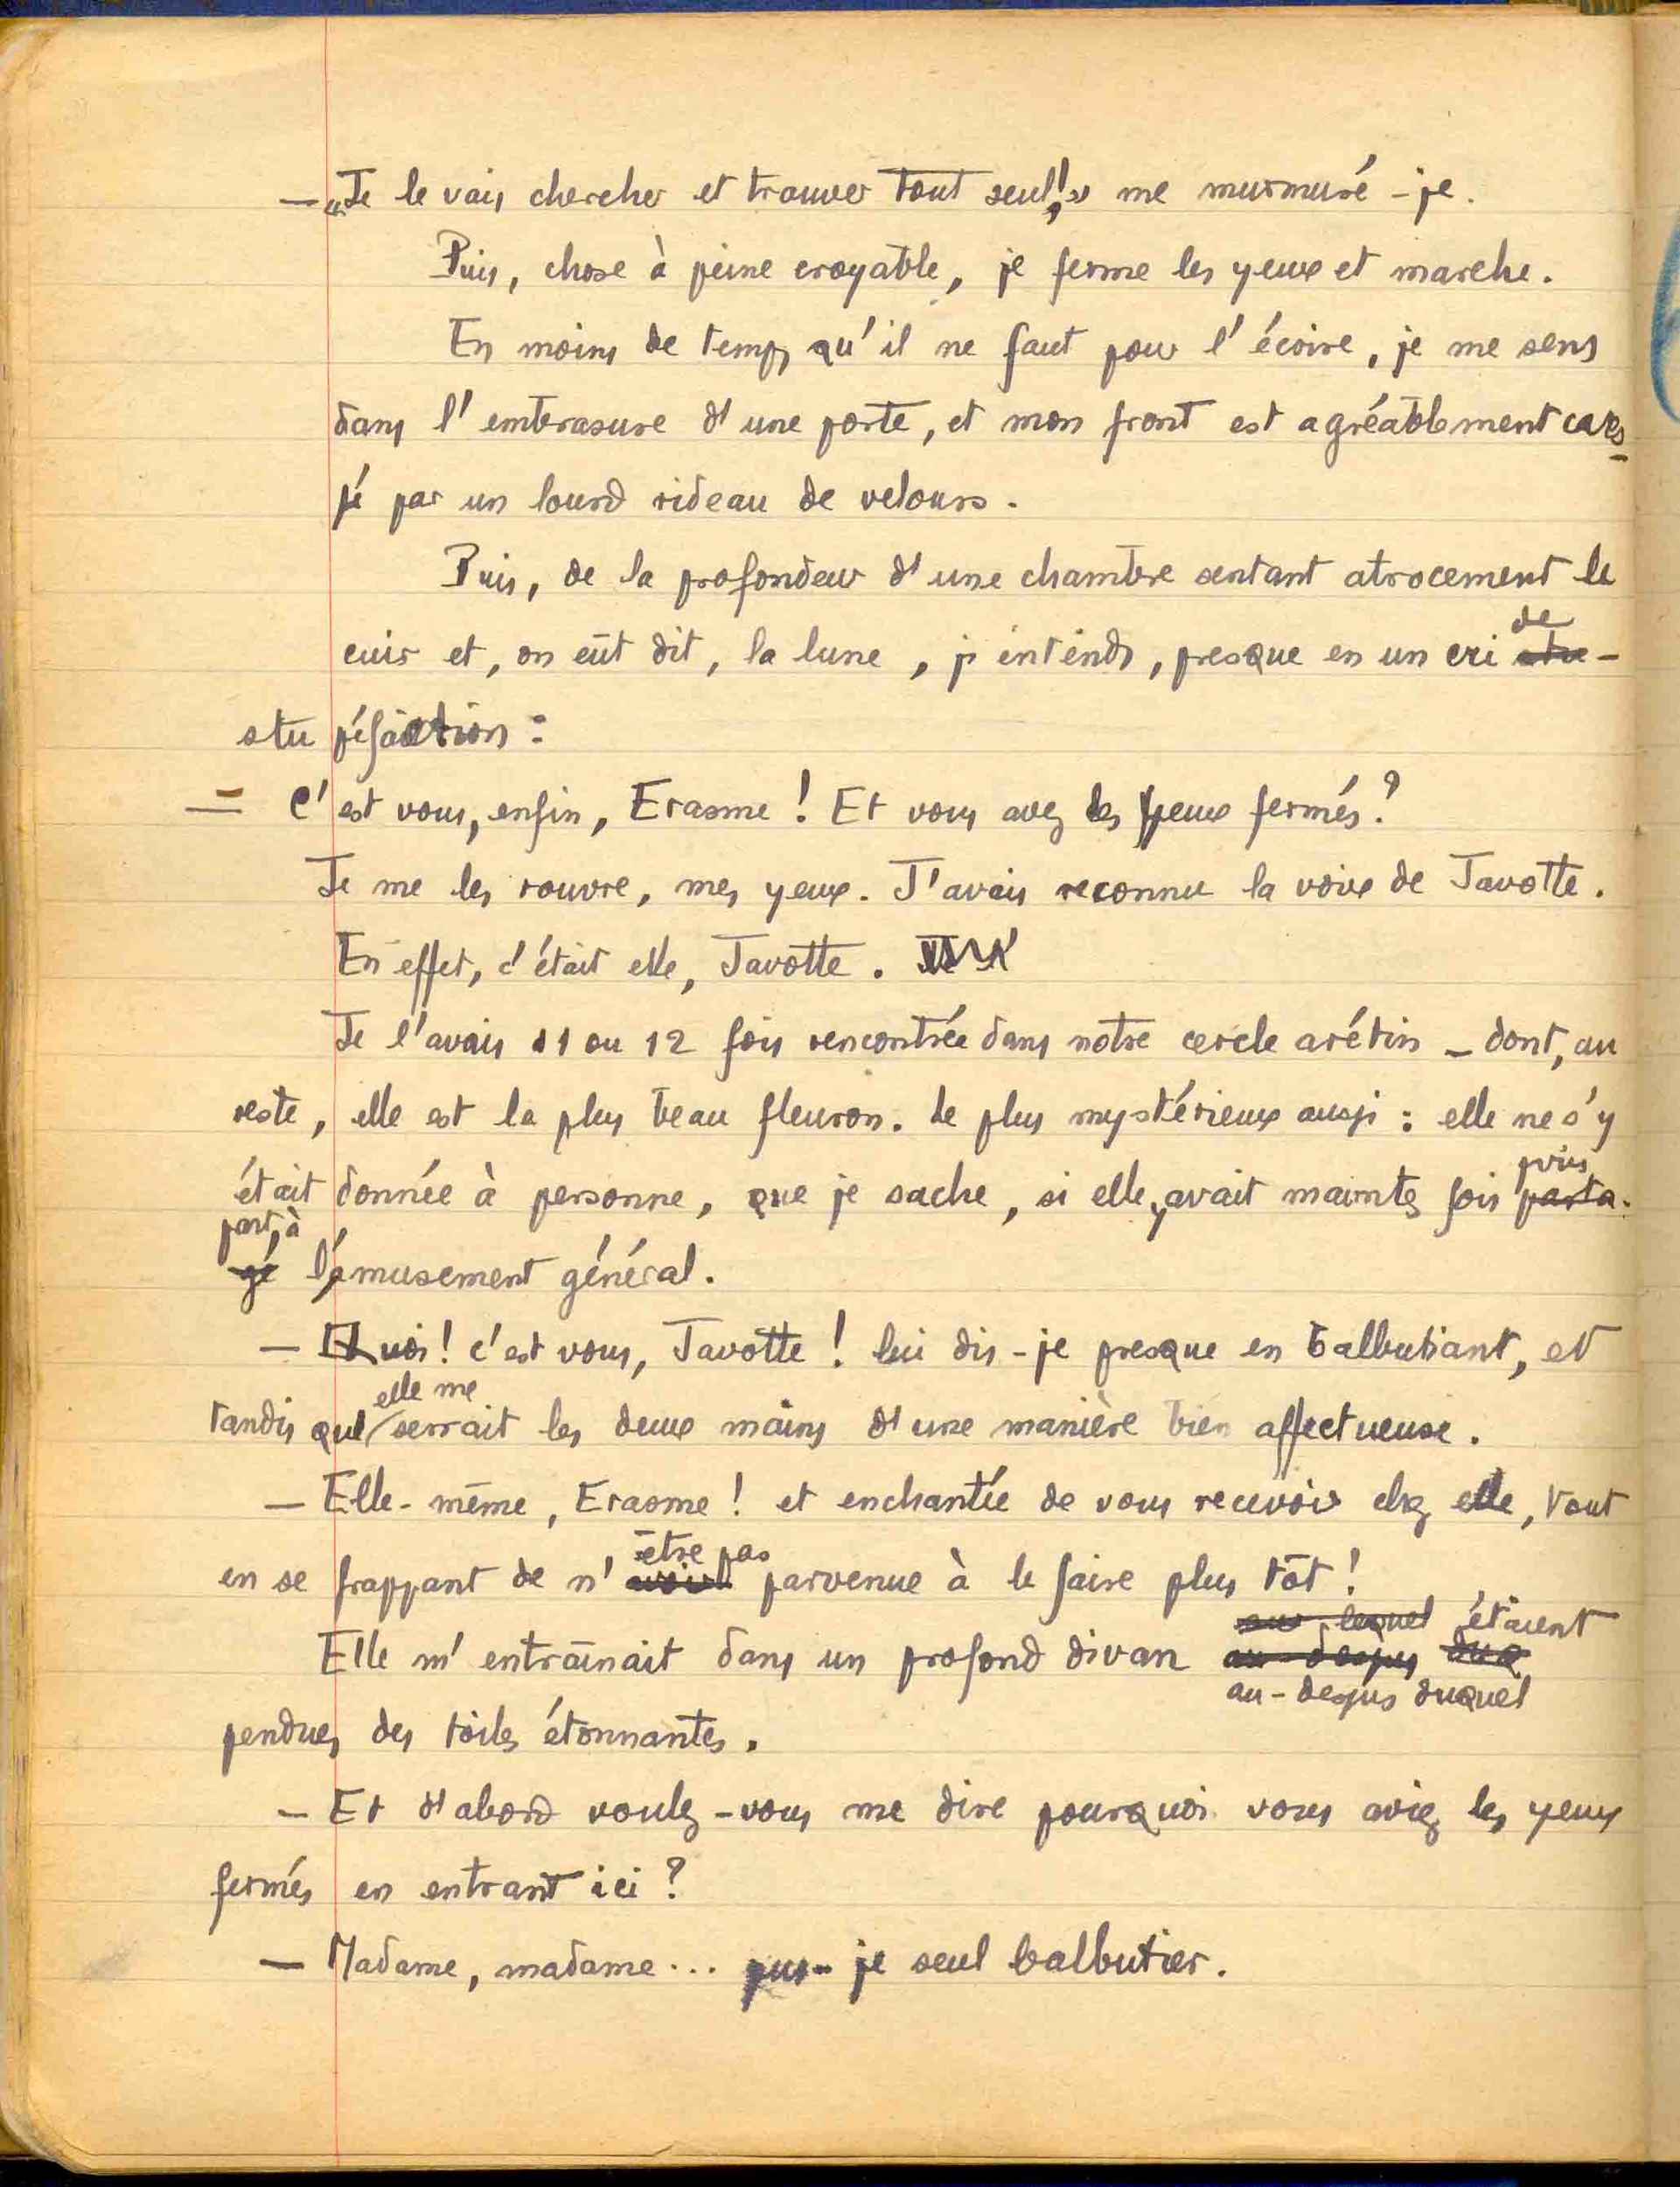 — « Je le vais chercher et trouver tout seul ! » me murmuré-je.
Puis, chose à peine croyable, je ferme les yeux et marche.
En moins de temps qu'il ne faut pour l'écrire, je me sens
dans l'embrasure d'une porte, et mon front est agréablement cares
sé par un lourd rideau de velours.
Puis, de la profondeur d'une chambre sentant atrocement le
cuir et, on eût dit, la lune, j'entends, presque en un cri de
stupéfaction :
— C'est vous, enfin, Erasme ! Et vous avez les yeux fermés ?
Je me les rouvre, mes yeux. J'avais reconnu la voix de Javotte.
En effet, c'était elle, Javotte.
Je l'avais 11 ou 12 fois rencontrée dans notre cercle arétin — dont, au
reste, elle est le plus beau fleuron. Le plus mystérieux aussi : elle ne s'y
était donnée à personne, que je sache, si elle y avait maintes fois pris
part, à l'amusement général.
— Quoi ! c'est vous, Javotte ! lui dis-je presque en balbutiant, et
tandis qu'elle me serrait les deux mains d'une manière bien affectueuse.
— Elle-même, Erasme ! et enchantée de vous recevoir chez elle, tout
en se frappant de n'être pas parvenue à le faire plus tôt !
Elle m'entraînait dans un profond divan au-dessus duquel étaient
pendues des toiles étonnantes.
— Et d'abord voulez-vous me dire pourquoi vous aviez les yeux
fermés en entrant ici ?
— Madame, madame... pus-je seul balbutier.